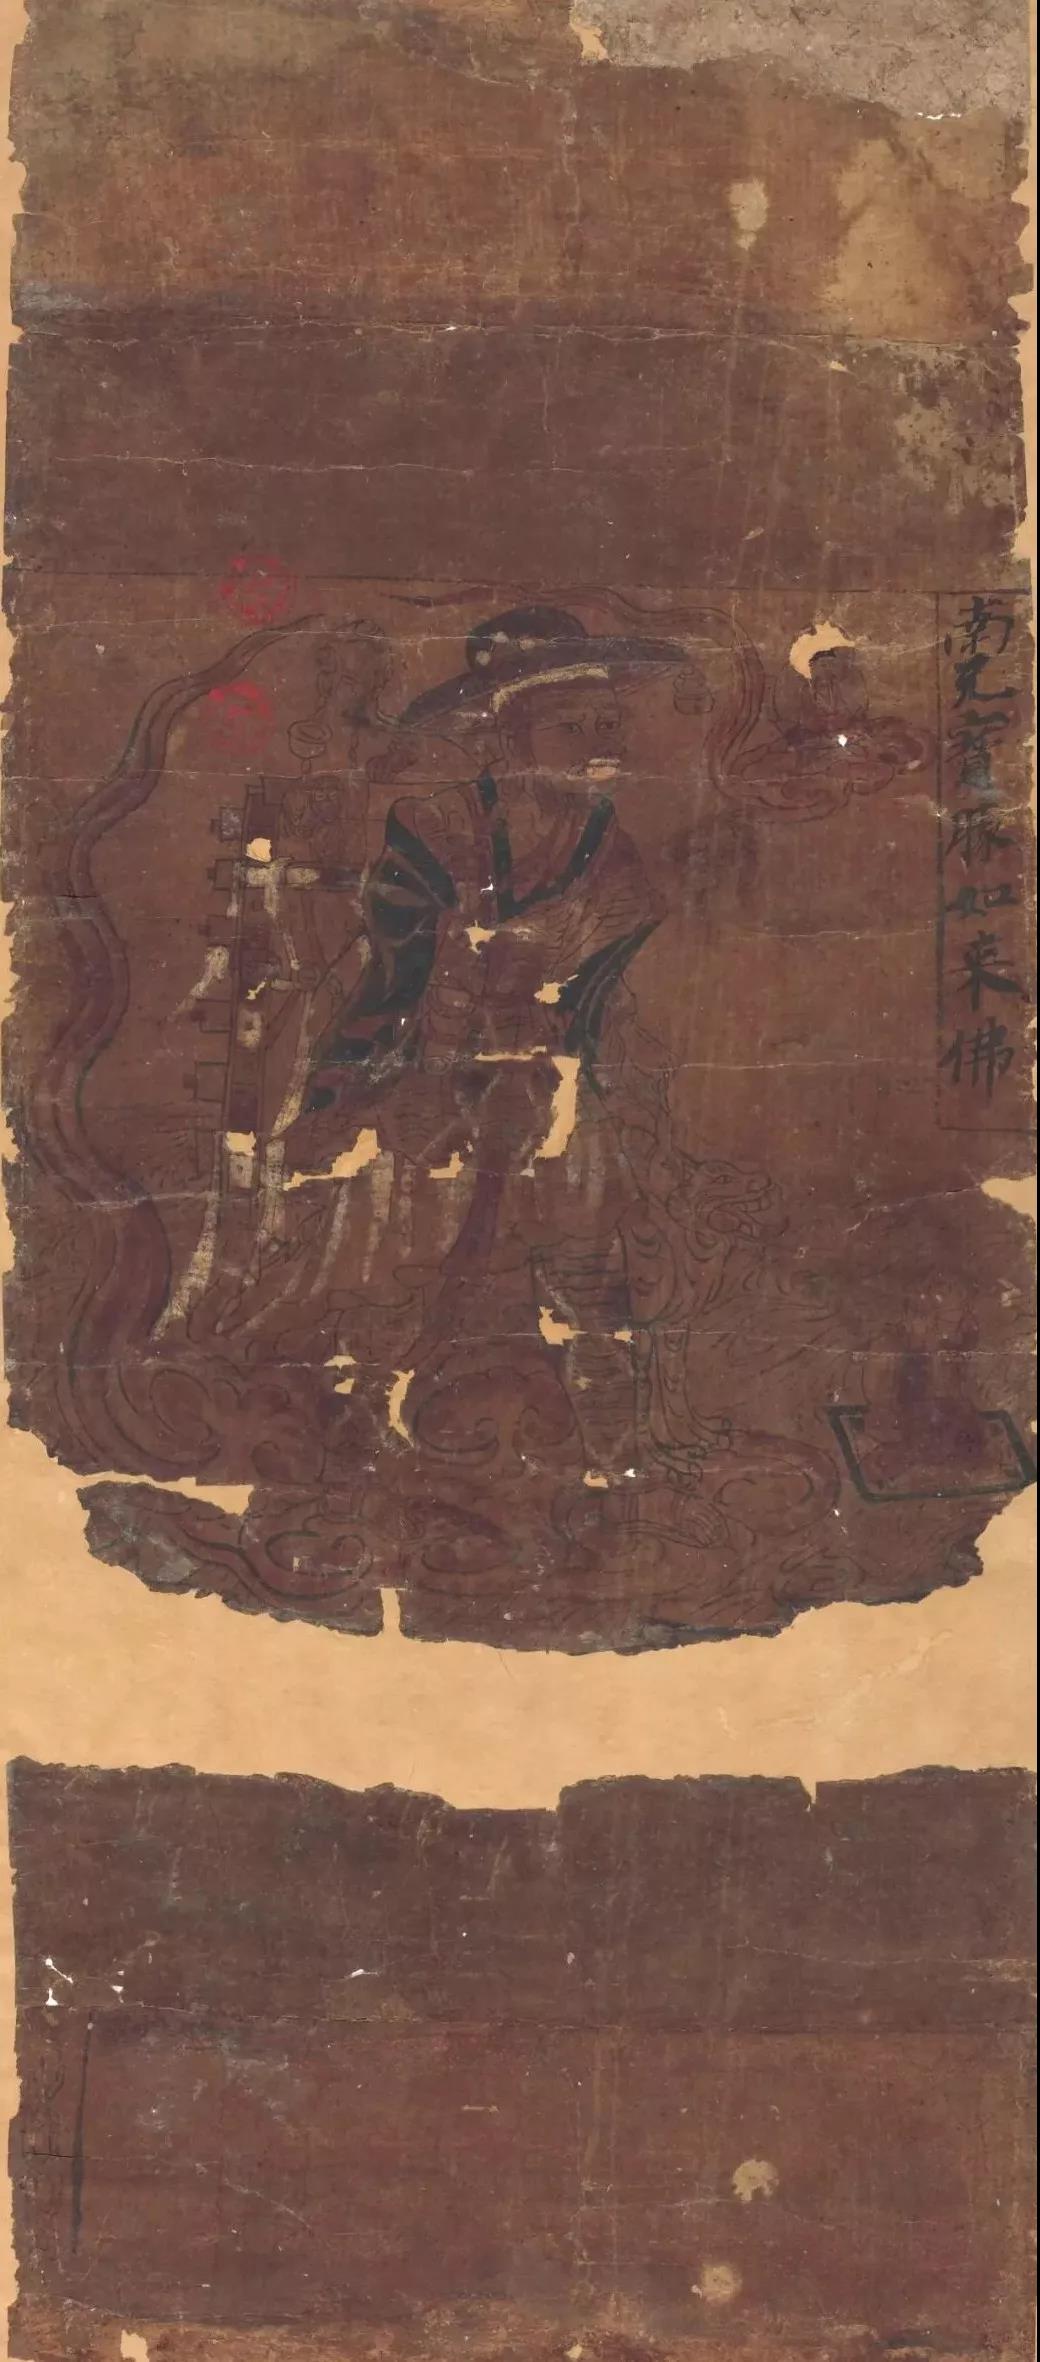 南无寶勝如来佛